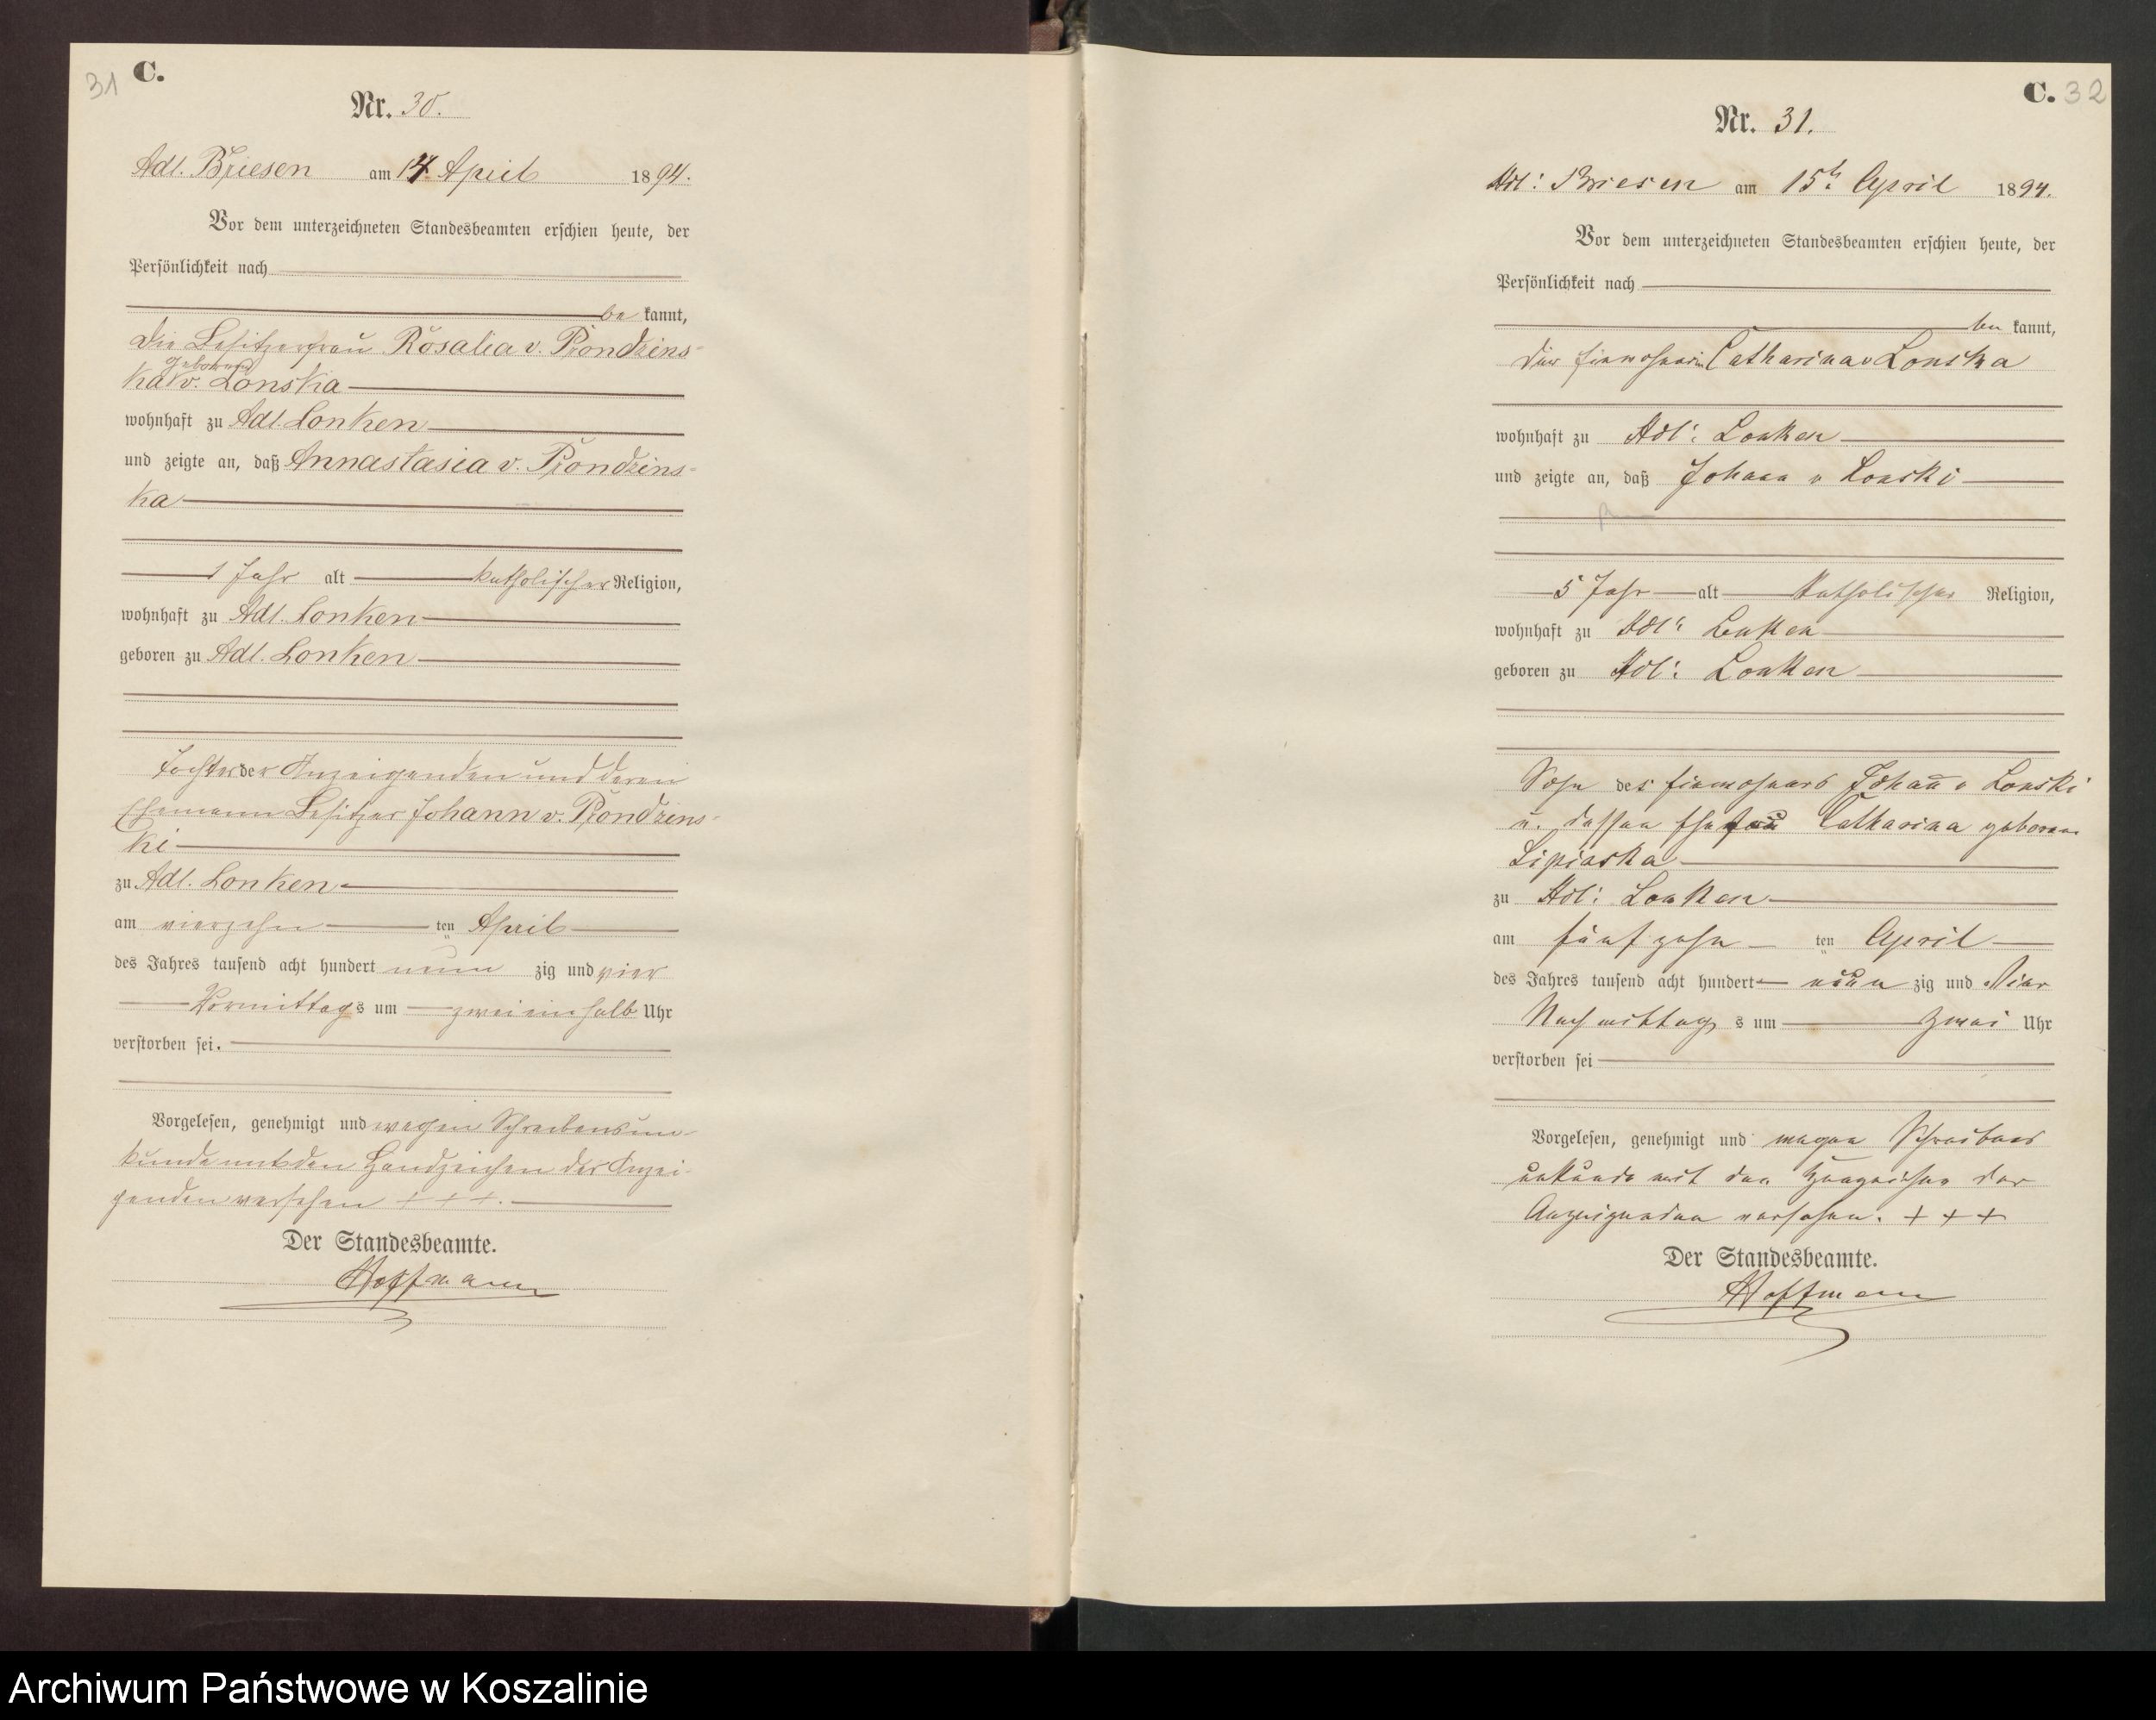 31 C.
Nr. 30.
Adl. Briesen am 14. April 1894.
Vor dem unterzeichneten Standesbeamten erschien heute, der
Persönlichkeit nach
be kannt,
die Besitzerfrau Rosalia v. Prondzins-
geborene
ka v. Lonska
wohnhaft zu Adl. Lonken
und zeigte an, daß Annastasia v. Prondzins-
ka
1 Jahr alt katholischer Religion,
wohnhaft zu Adl. Lonken
geboren zu Adl. Lonken
Tochter der Anzeigenden und deren
Ehemann Besitzer Johann v. Prondzins-
ki
zu Adl. Lonken
am vierzehn ten April
des Jahres tausend acht hundert neun zig und vier
Vormittags um zweieinhalb Uhr
verstorben sei.
Vorgelesen, genehmigt und wegen Schreibensun-
kunde mit den Handzeichen der Anzei-
genden versehen + + +.
Der Standesbeamte.
Hoffmann
C. 32
Nr. 31.
Adl: Briesen am 15t. April 1894.
Vor dem unterzeichneten Standesbeamten erschien heute, der
Persönlichkeit nach
be kannt,
die Einwohnerin Catharina v Lonska
wohnhaft zu Adl: Lonken
und zeigte an, daß Johann v Lonski
5 Jahr alt Katholischer Religion,
wohnhaft zu Adl: Lonken
geboren zu Adl: Lonken
Sohn des Einwohners Johann v Lonski
u. dessen Ehefrau Catharina geborene
Lipinska
zu Adl: Lonken
am fünfzehn ten April
des Jahres tausend acht hundert neun zig und Vier
Nachmittags um zwei Uhr
verstorben sei
Vorgelesen, genehmigt und wegen Schreibens
unkunde mit den der
Anzeigenden versehen. + + +
Der Standesbeamte.
Hoffmann
Archiwum Państwowe w Koszalinie